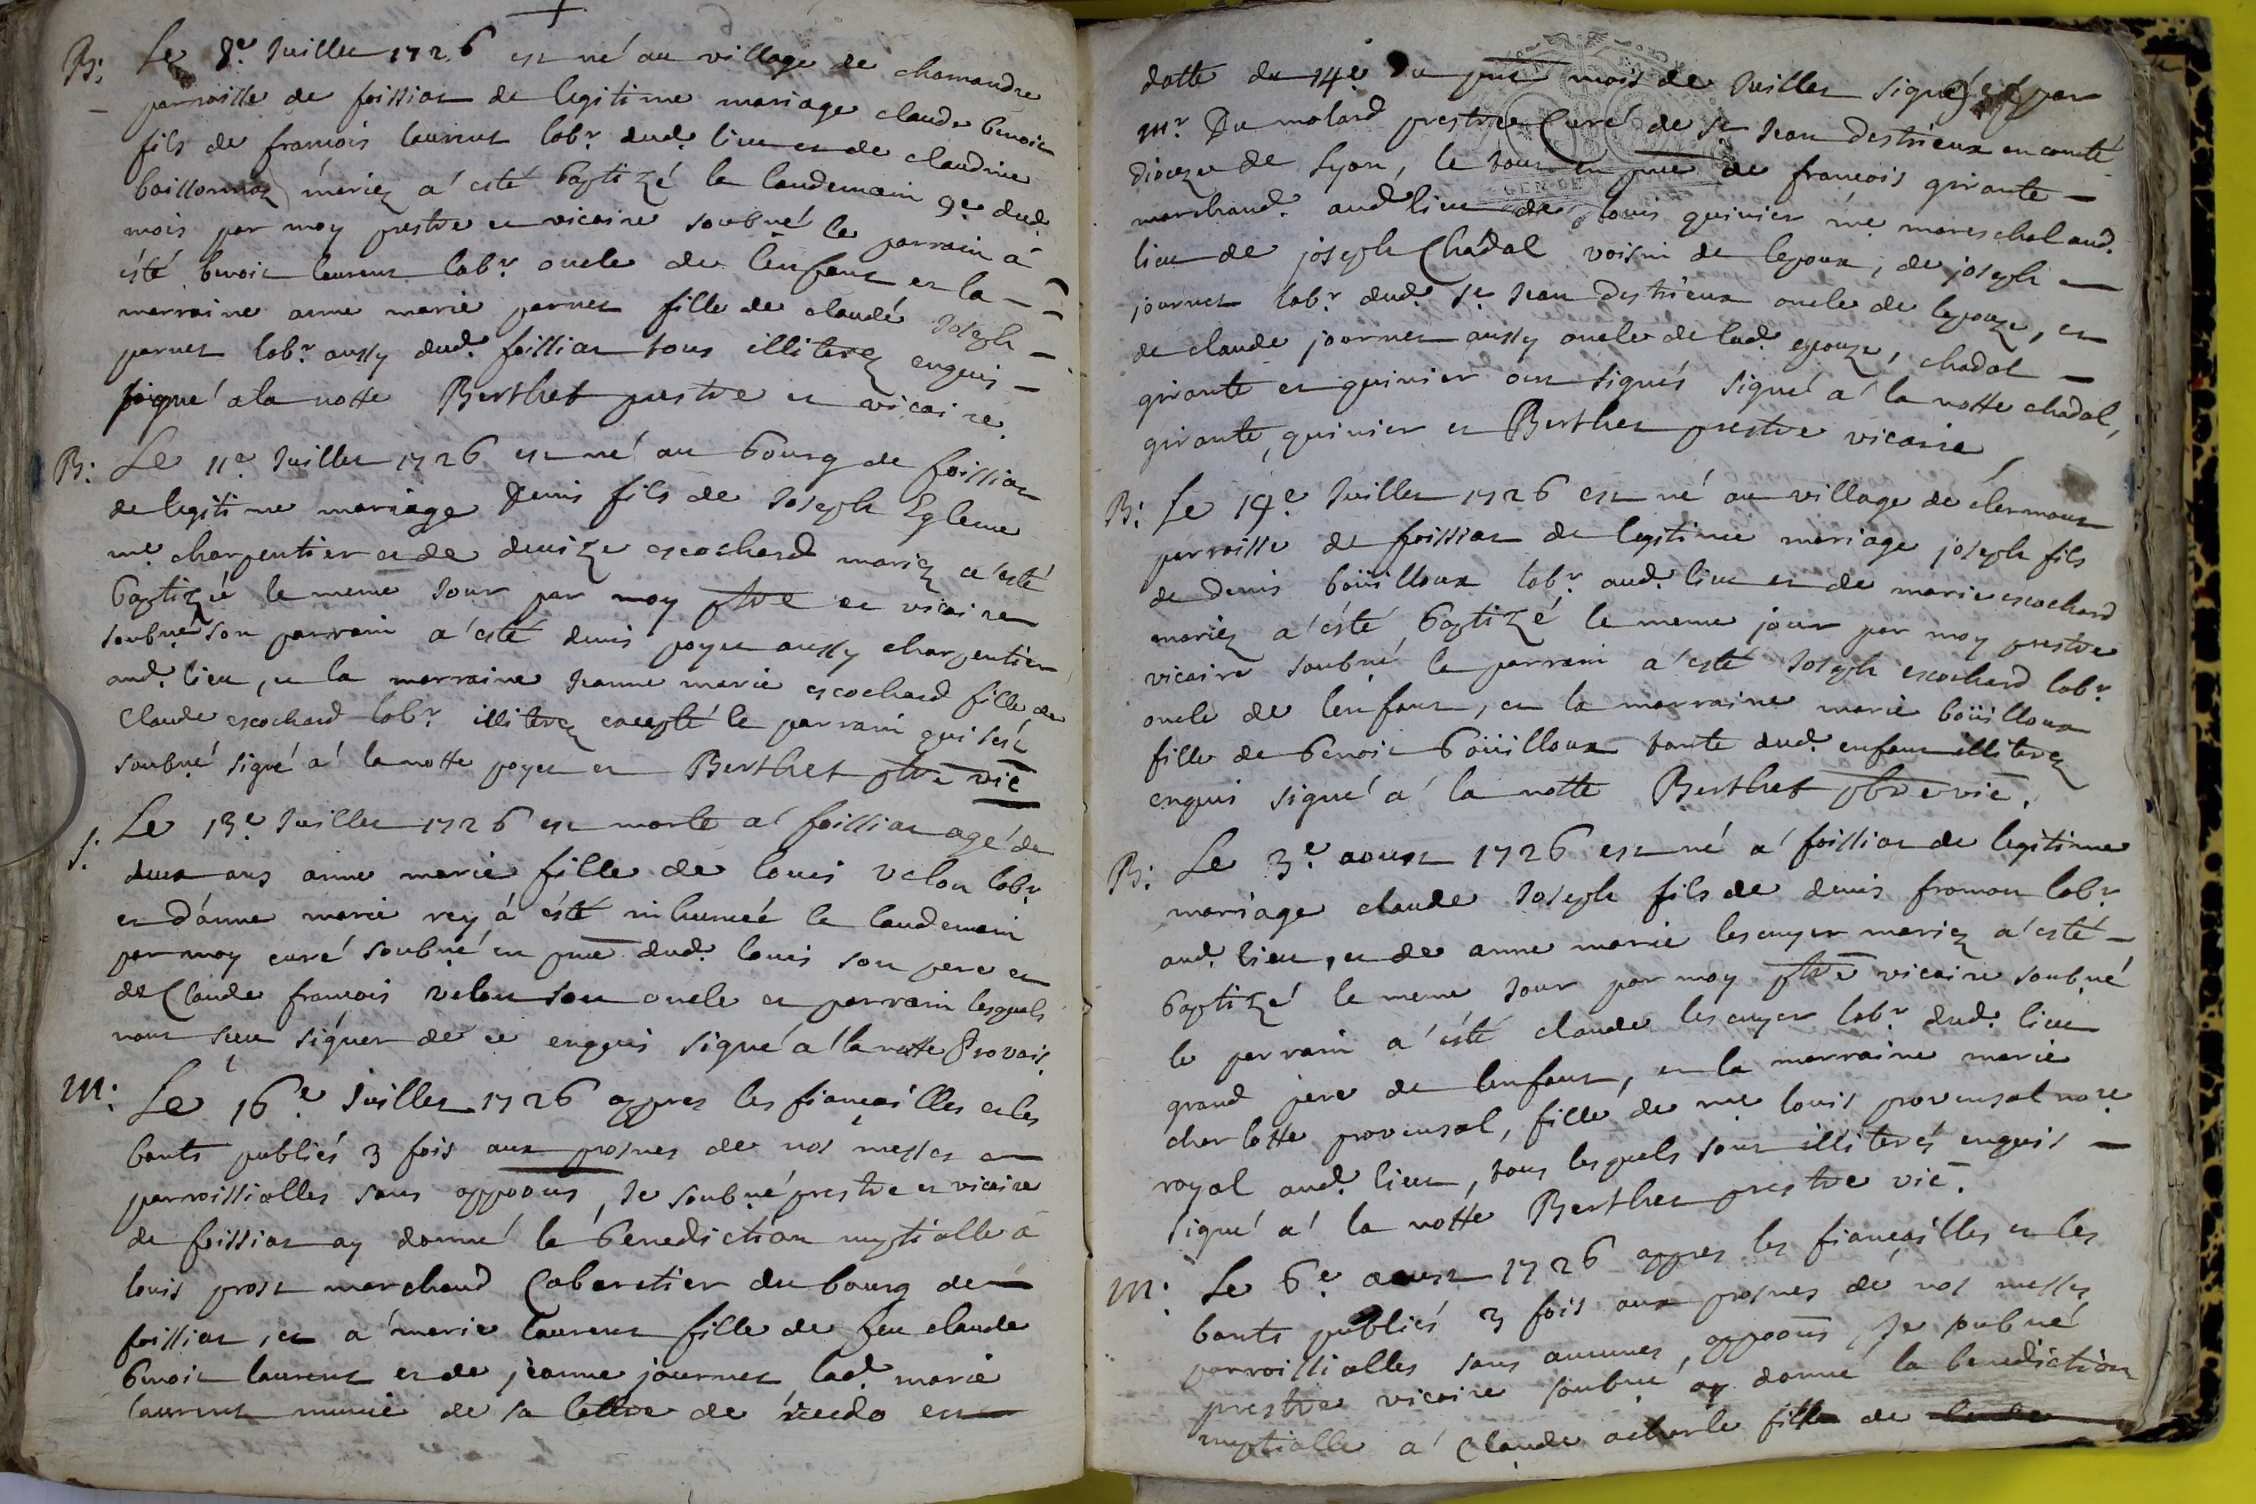 B: Le 8e Juillet 1726 est né au village de chamandre
parroisse de foissiat de legitime mariage claude benoit
fils de francois laurent labr dud. lieu et de claudine
mariez a esté baptizé le landemain 9e dud.
mois par moy prestre et vicaire soubné le parrain a
ésté benoit laurent labr oncle de l'enfant et la
marraine anne marie pernet fille de claude Joseph
pernet labr aussy dud. foissiat tous illiterez enquis
signé a la notte Berthet prestre et vicaire.
B: Le 11e Juillet 1726 est né au bourg de foissiat
de legitime mariage Denis fils de Joseph Egleme
me charpentier et de denize escochard mariez a esté
baptizé le meme Jour par moy ptre et vicaire
soubné son parrain a esté denis poyet aussy charpentier
aud. lieu, et la marraine Jeanne marie escochard fille de
Claude escochard labr illiterez excepté le parrain qui s'est
soubné signé a la notte poyet et Berthet ptre vic
S: Le 13e Juillet 1726 est morte a foissiat agé de
deux ans anne marie fille de louis velon labr
et d'anne marie rey á ésté inhumée le landemain
par moy curé soubné en pnce dud. louis son pere et
de Claude francois velon son oncle et parrain lesquels
n'ont sceu signer de ce enquis signé a la notte
M: Le 16e Juillet 1726 appres les fiancailles et les
bants publiés 3 fois aux prosnes de nos messes
parroissialles sans oppoōns, Je soubné prestre et vicaire
de foissiat ay donné la benediction nuptialle a
louis prost marchand Cabaretier du bourg de
foissiat, et a marie laurent fille de feu claude
benoit laurent et de jeanne journet lad. marie
laurent munie de sa lettre de recedo en
datte du 14e du pnt mois de Juillet signé par
Mr Du molard prestre Curé de St Jean destrieux en comté
Dioceze de Lyon, le tout en pnce de francois girante
marchand aud lieu de louis quinier me mareschal aud.
lieu de joseph Chadal voisin de lepoux, de joseph
journet labr dud. St Jean destrieux oncle de lepouze, et
de claude journet aussy oncle de lad. epouze, chadal
girante et quinier ont signés signé a la notte chadal,
girante, quinier et Berthet prestre vicaire
B: Le 19e Juillet 1726 est né au village de clermont
parroisse de foissiat de legitime mariage joseph fils
de denis boüilloux labr aud. lieu et de marie escochard
mariez a ésté baptizé le meme jour par moy prestre
vicaire soubné le parrain a esté Joseph escochard labr
oncle de lenfant, et la marraine marie boüilloux
fille de benoit boüilloux tante dud. enfant illiterez
enquis signé a la notte Berthet ptre vic.
B: Le 3e aoust 1726 est né a foissiat de legitime
mariage claude Joseph fils de denis fromont labr
aud. lieu, et de anne marie lescuyer mariez a esté
baptizé le meme Jour par moy ptre vicaire soubné
le parrain a ésté claude lescuyer labr dud. lieu
grand pere de lenfant, et la marraine marie
charlotte provensal, fille de me louis provensal nore
royal aud. lieu, tous lesquels sont illiterés enquis
signé a la notte Berthet prestre vic.
M: Le 6e aoust 1726 appres les fiancailles et les
bants publiés 3 fois aux prosnes de nos messes
parroissialles sans aucunes oppoōns, Je soubné
prestre vicaire soubné ay donné la benediction
nuptialle a Claude fille de